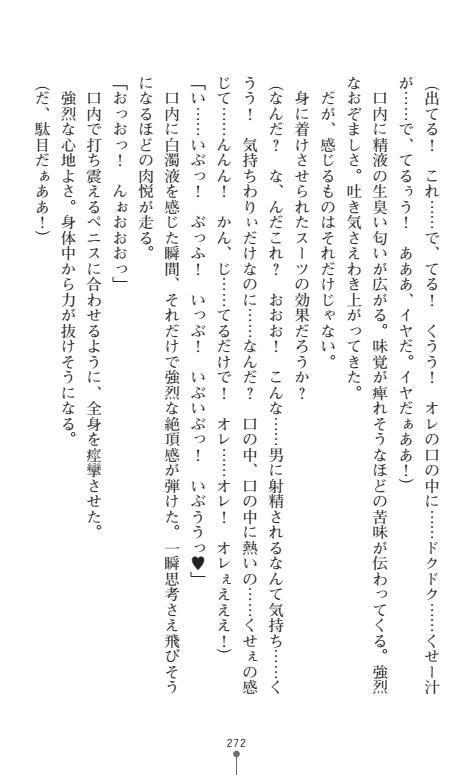 (出てる！　これ……で、てる！　くうう！　オレの口の中に……ドクドク……くせー汁
が……で、てるぅう！　あああ、イヤだ。イヤだぁああ！)
　口内に精液の生臭い匂いが広がる。味覚が痺れそうなほどの苦味が伝わってくる。強烈
なおぞましさ。吐き気さえわき上がってきた。
　だが、感じるものはそれだけじゃない。
　身に着けさせられたスーツの効果だろうか？
(なんだ？　な、んだこれ？　おおお！　こんな……男に射精されるなんて気持ち……く
うう！　気持ちわりぃだけなのに……なんだ？　口の中、口の中に熱いの……くせぇの感
じて……んんん！　かん、じ……てるだけで！　オレ……オレ！　オレぇえええ！)
「い……いぶっ！　ぶっふ！　いっぶ！　いぶいぶっ！　いぶううっ♥」
　口内に白濁液を感じた瞬間、それだけで強烈な絶頂感が弾けた。一瞬思考さえ飛びそう
になるほどの肉悦が走る。
「おっおっ！　んぉおおおっ」
　口内で打ち震えるペニスに合わせるように、全身を痙攣させた。
　強烈な心地よさ。身体中から力が抜けそうになる。
(だ、駄目だぁああ！)
272